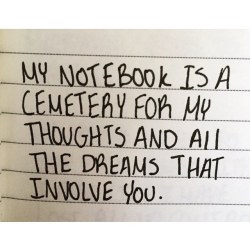 MY NOTEBOOK IS A
CEMETERY FOR MY
THOUGHTS AND All
THE DREAMS THAT
INVOLVE YOU.